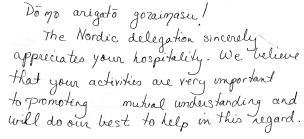 Dōmo arigatō gozaimasu!
The Nordic delegation sincerely
appreciates your hospitality. We believe
that your activities are very important
to promoting mutual understanding and
will do our best to help in this regard.